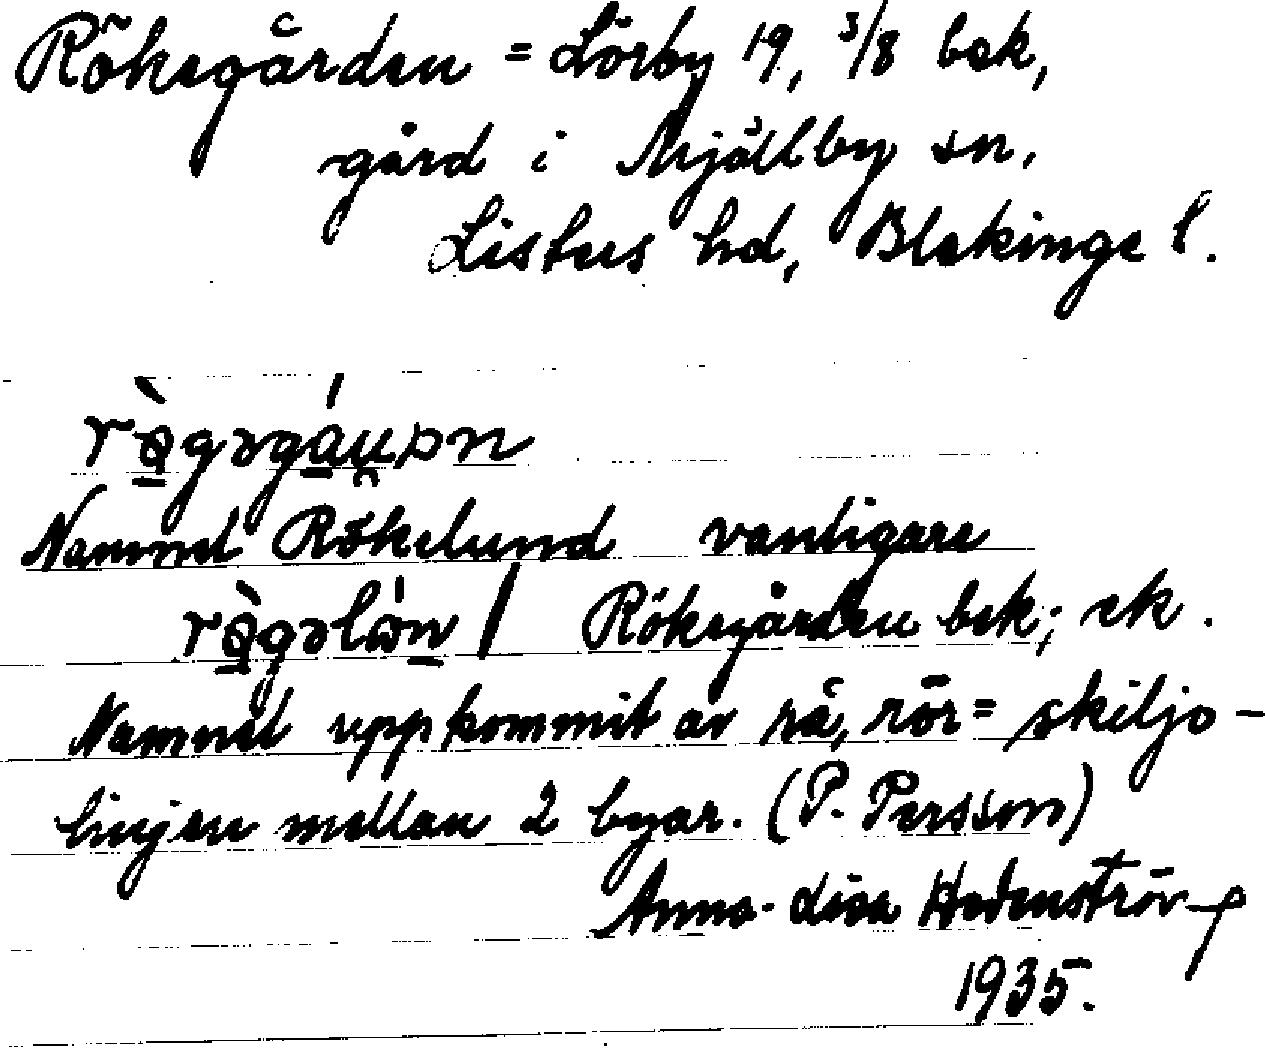 Röksgården = Lörby 19, 3/8 bek,
gård i Mjällby sn,
Listers hd, Blekinge l.
Namnet Rökelund vanligare
Röksgården bek; ek.
Namnet uppkommit av rå, rör = skiljo-
linjen mellan 2 byar. (P. Persson)
Anna-Lisa Hedenström
1935.